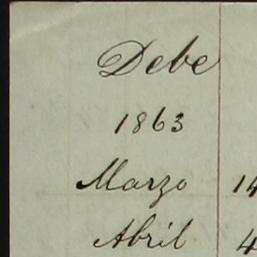 Debe
1863
Marzo 14
Abril 4